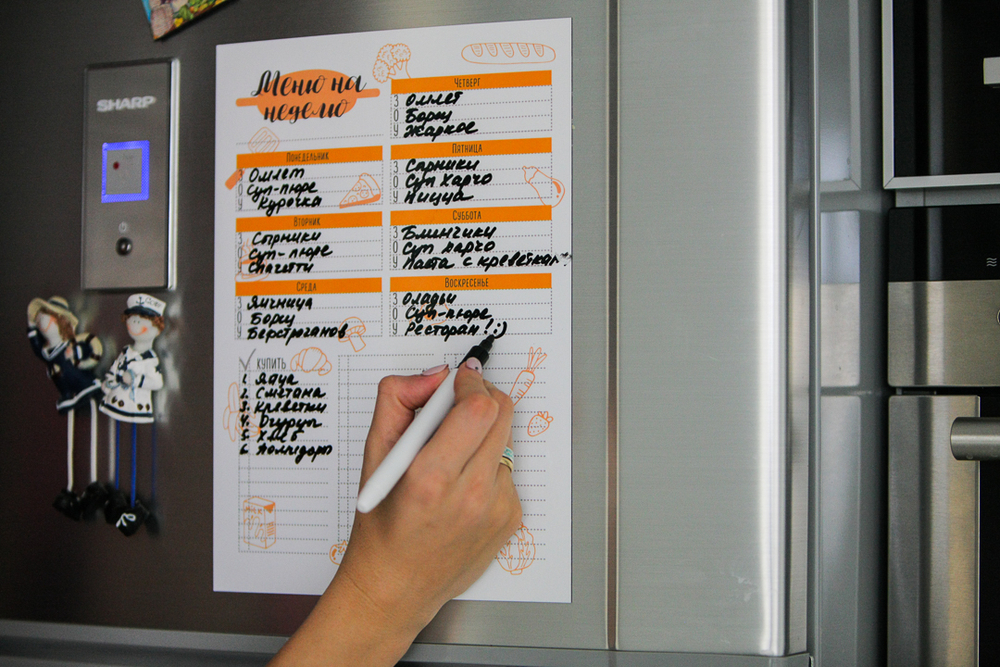 SHARP
Меню на
неделю
Понедельник
З Омлет
О Суп-пюре
У Курочка
Вторник
З Сырники
О Суп-пюре
У Спагетти
Среда
З Яичница
О Борщ
У Бефстроганов
Четверг
З Омлет
О Борщ
У Жаркое
Пятница
З Сырники
О Суп Харчо
У Пицца
Суббота
З Блинчики
О Суп харчо
У Паста с креветкам
Воскресенье
З Оладьи
О Суп-пюре
У Ресторан!:)
Купить
1. Яйца
2. Сметана
3. Креветки
4. Огурцы
5. Хлеб
6. Помидоры